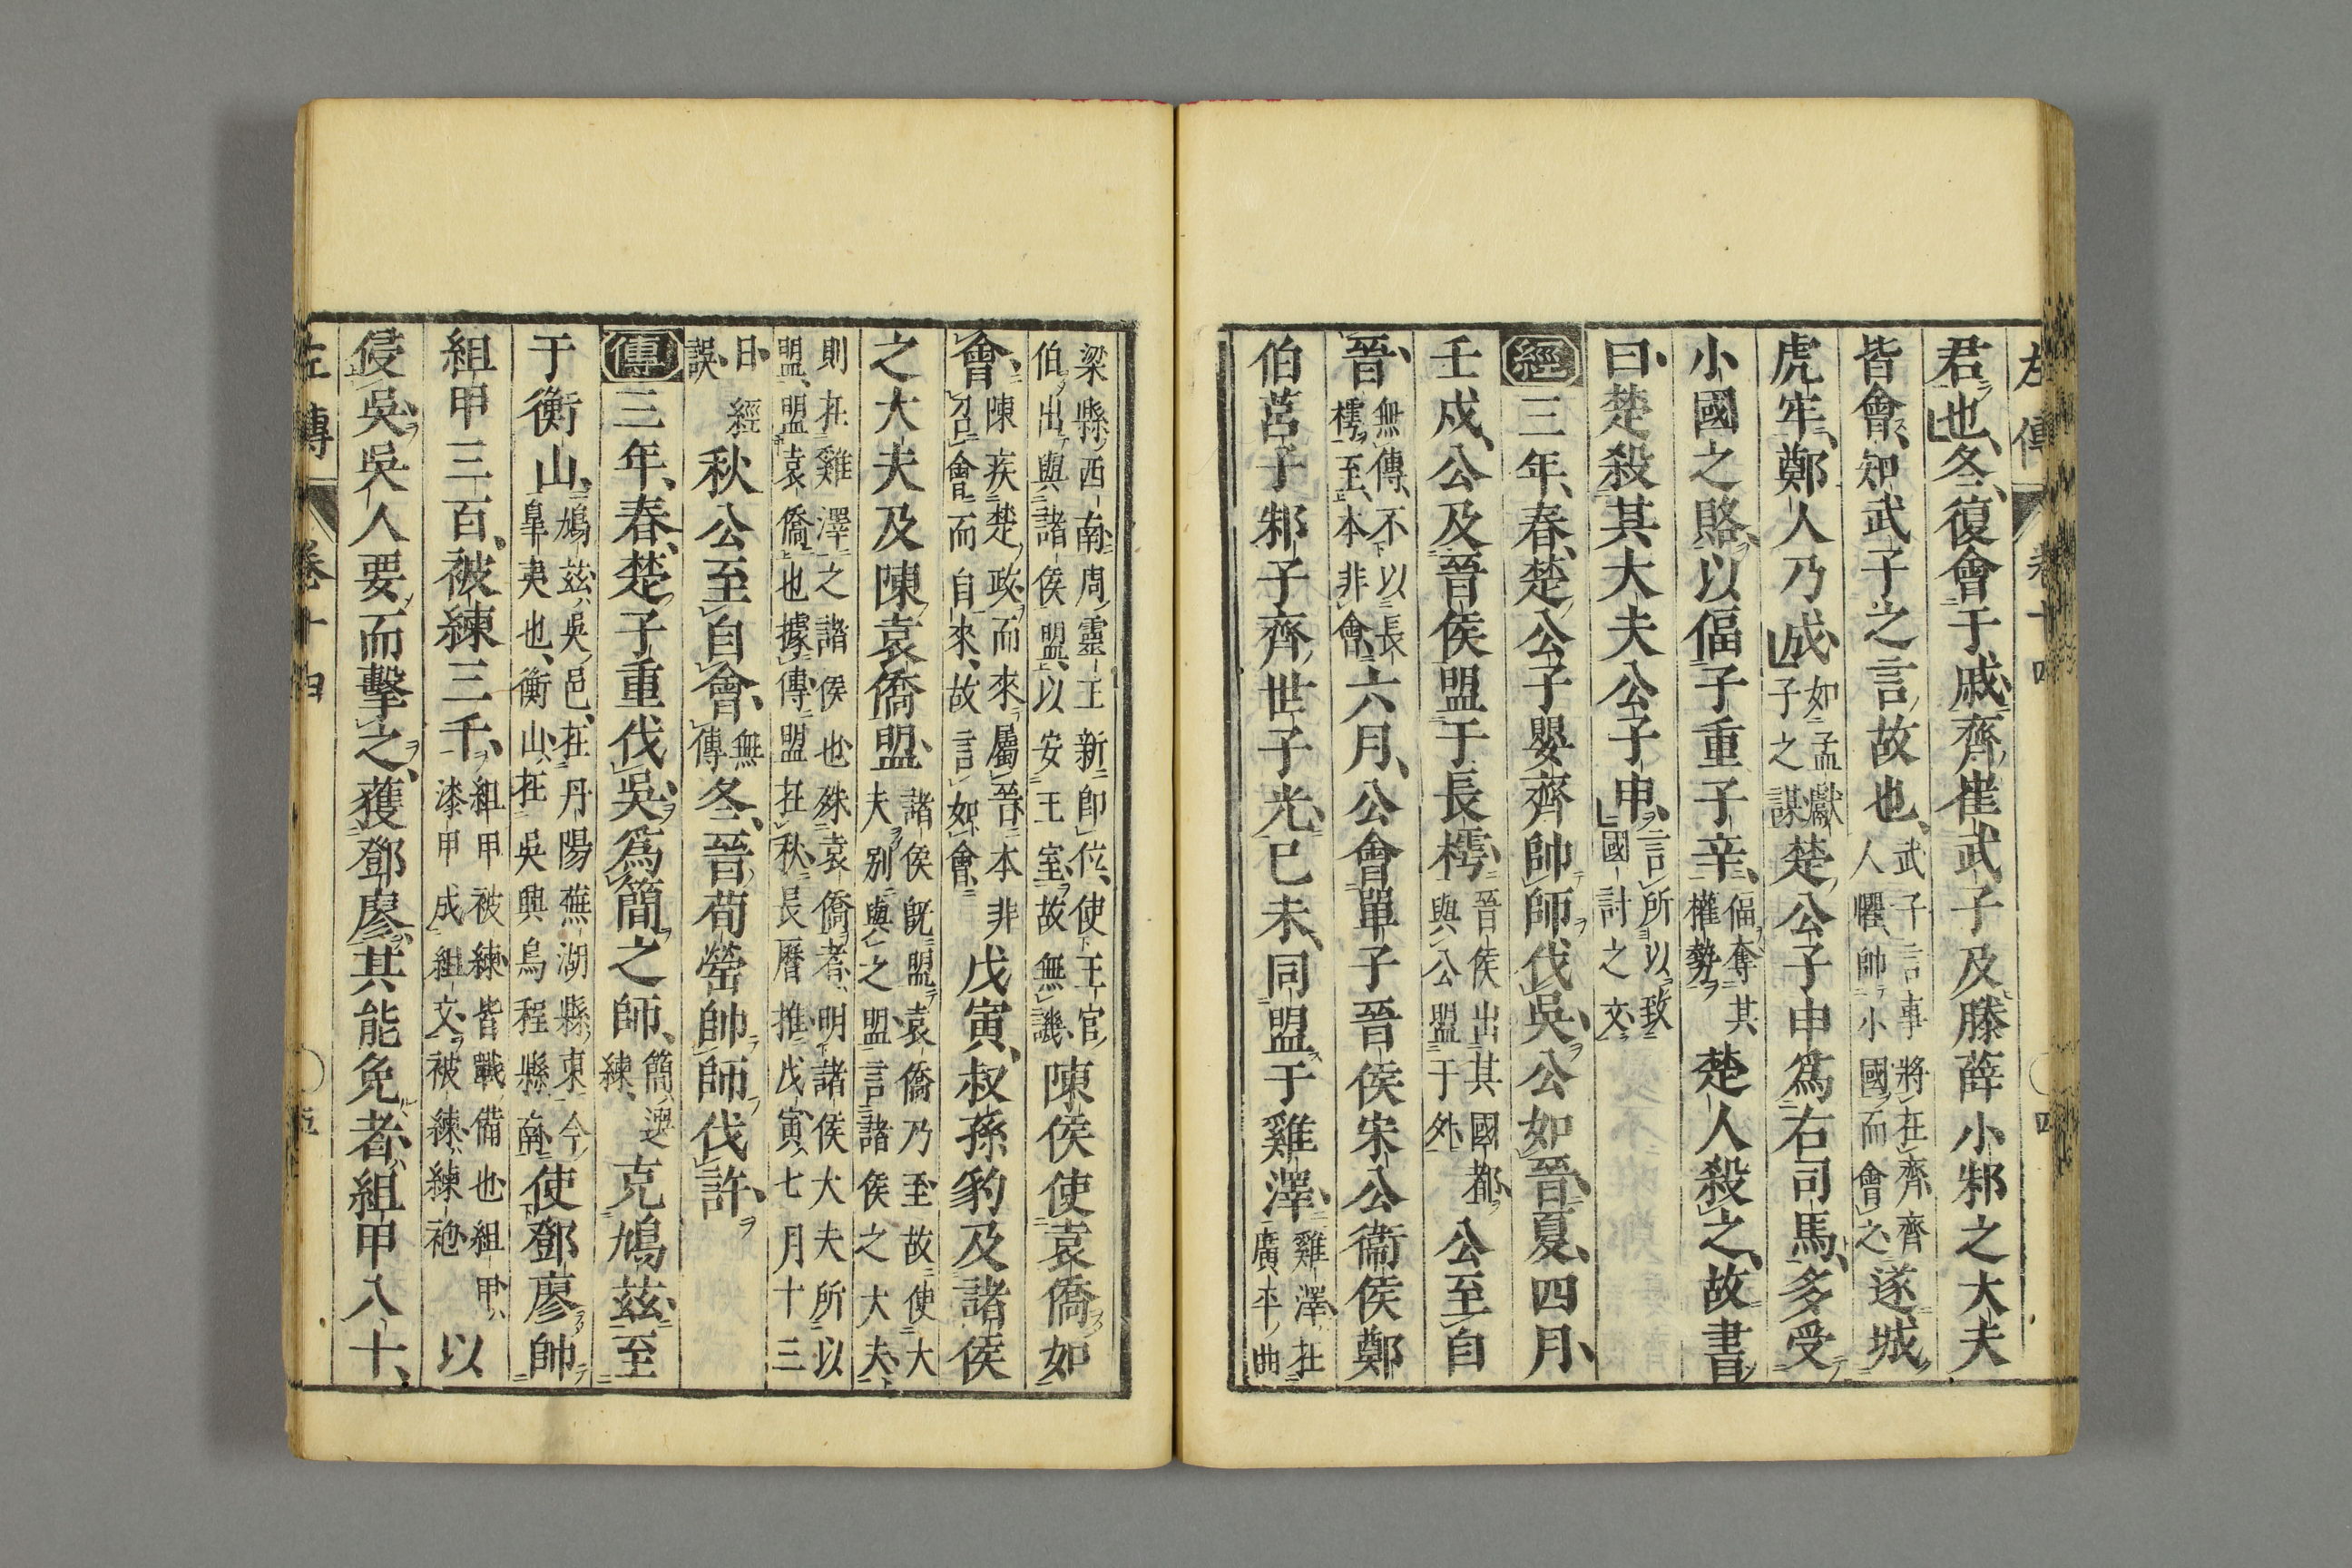 左傳 卷十四 四
君也、冬、復會于戚、齊崔武子及滕薛小邾之大夫
皆會、知武子之言故也、武子言事將在齊齊人懼、帥小國而會之遂城
虎牢、鄭人乃成、如孟獻子之謀楚公子申爲右司馬、多受
小國之賂、以偪子重子辛、偪奪其權勢楚人殺之、故書
曰、楚殺其大夫公子申、言所以致國討之文
經三年、春、楚公子嬰齊帥師伐吳、公如晉、夏、四月、
壬戌、公及晉侯盟于長樗、晉侯出其國都與公盟于外公至自
晉、無傳、不以長樗至、本非會、六月、公會單子晉侯宋公衞侯鄭
伯莒子邾子齊世子光、已未、同盟于雞澤、雞澤在廣平曲
梁縣西南周靈王新卽位、使王官伯出與諸侯盟、以安王室故無譏、陳侯使袁僑如
會、陳疾楚政而來屬晉本非召會而自來、故言如會、戊寅、叔孫豹及諸侯
之大夫及陳袁僑盟、諸侯旣盟袁僑乃至故使大夫別與之盟言諸侯之大夫
則在雞澤之諸侯也殊袁僑者明諸侯大夫所以盟、盟袁僑也據傳盟在秋長曆推戊寅七月十三
日經誤秋公至自會、無傳冬、晉荀罃帥師伐許、
傳三年、春、楚子重伐吳、爲簡之師、簡選練、克鳩茲、至
于衡山、鳩茲吳邑、在丹陽蕪湖縣東今皐夷也、衡山、在吳興烏程縣南使鄧廖帥
組甲三百、被練三千、組甲被練皆戰備也組甲、漆甲成組文被練練袍以
侵吳、吳人要而擊之、獲鄧廖、其能免者、組甲八十、
左傳 卷十四 五